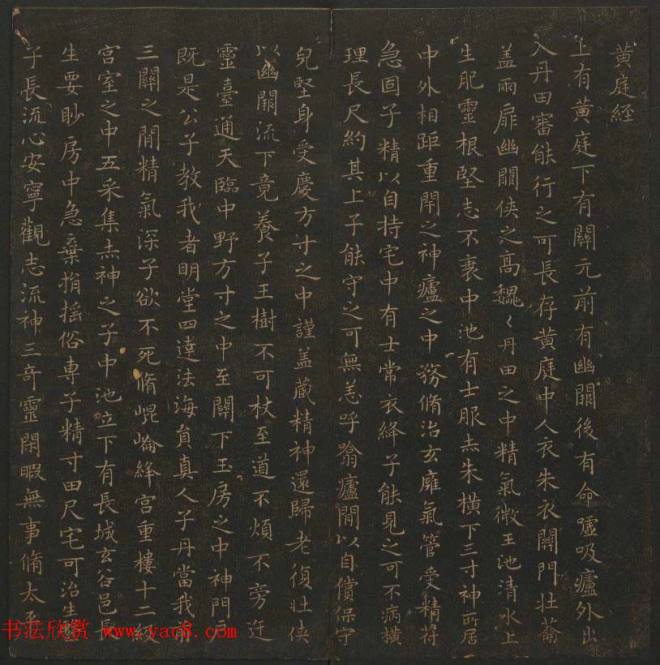 黄庭经
上有黄庭下有關元前有幽關後有命嘘吸廬外出
入丹田審能行之可長存黄庭中人衣朱衣關門壯蘥
盖兩扉幽關侠之高魏〻丹田之中精氣微玉池清水上
生肥靈根堅志不衰中池有士服赤朱横下三寸神所居
中外相距重閇之神廬之中務脩治玄廱氣管受精符
急固子精以自持宅中有士常衣絳子能見之可不病横
理長尺約其上子能守之可無恙呼翕廬間以自償保守
皃堅身受慶方寸之中謹盖藏精神還歸老復壮侠
以幽關流下竟養子玉樹不可杖至道不煩不旁迕
靈臺通天臨中野方寸之中至關下玉房之中神門户
既是公子教我者明堂四達法海負真人子丹當我前
三關之間精氣深子欲不死脩崐崘絳宫重樓十二級
宫室之中五采集赤神之子中池立下有長城玄谷邑長
生要眇房中急棄捐揺俗專子精寸田尺宅可治生
子長流心安寧觀志流神三奇靈閑暇無事脩太平
书法欣赏 www.yac8.com